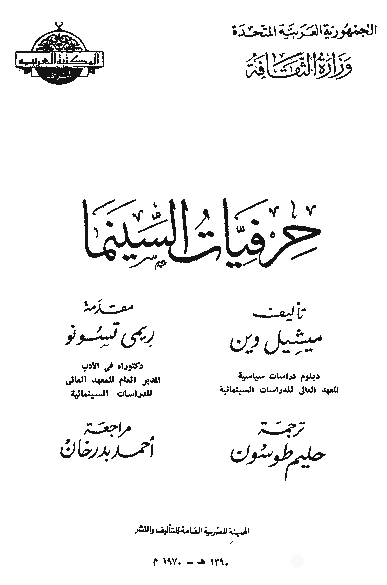 الجمهورية العربية المتحدة
وزارة الثقافة
المكتبة العربية
حرفيات السينما
تأليف
ميشيل وين
دبلوم دراسات سياسية
المعهد العالي للدراسات السينمائية
مقدمة
ريمى تسونو
دكتوراه في الأدب
المدير العام للمعهد العالي
للدراسات السينمائية
ترجمة
حليم طوسون
مراجعة
أحمد بدرخان
الهيئة المصرية العامة للتأليف والنشر
١٣٩٠ هـ - ١٩٧٠ م